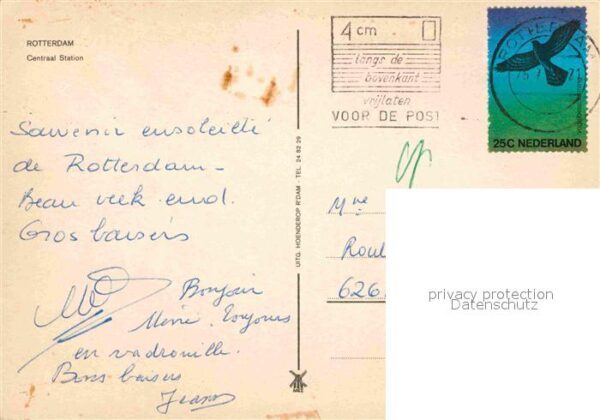 ROTTERDAM
Centraal Station
4 cm
langs de
bovenkant
vrijlaten
VOOR DE POST
ROTTERDAM
25C NEDERLAND
UITG. HOENDEROP R'DAM - TEL. 24 82 26
Souvenir ensoleillé
de Rotterdam -
Beau week-end.
Gros baisers
Bonjour
Mimi. Toujours
en vadrouille.
Bons baisers
Mme
Roul
626
privacy protection
Datenschutz